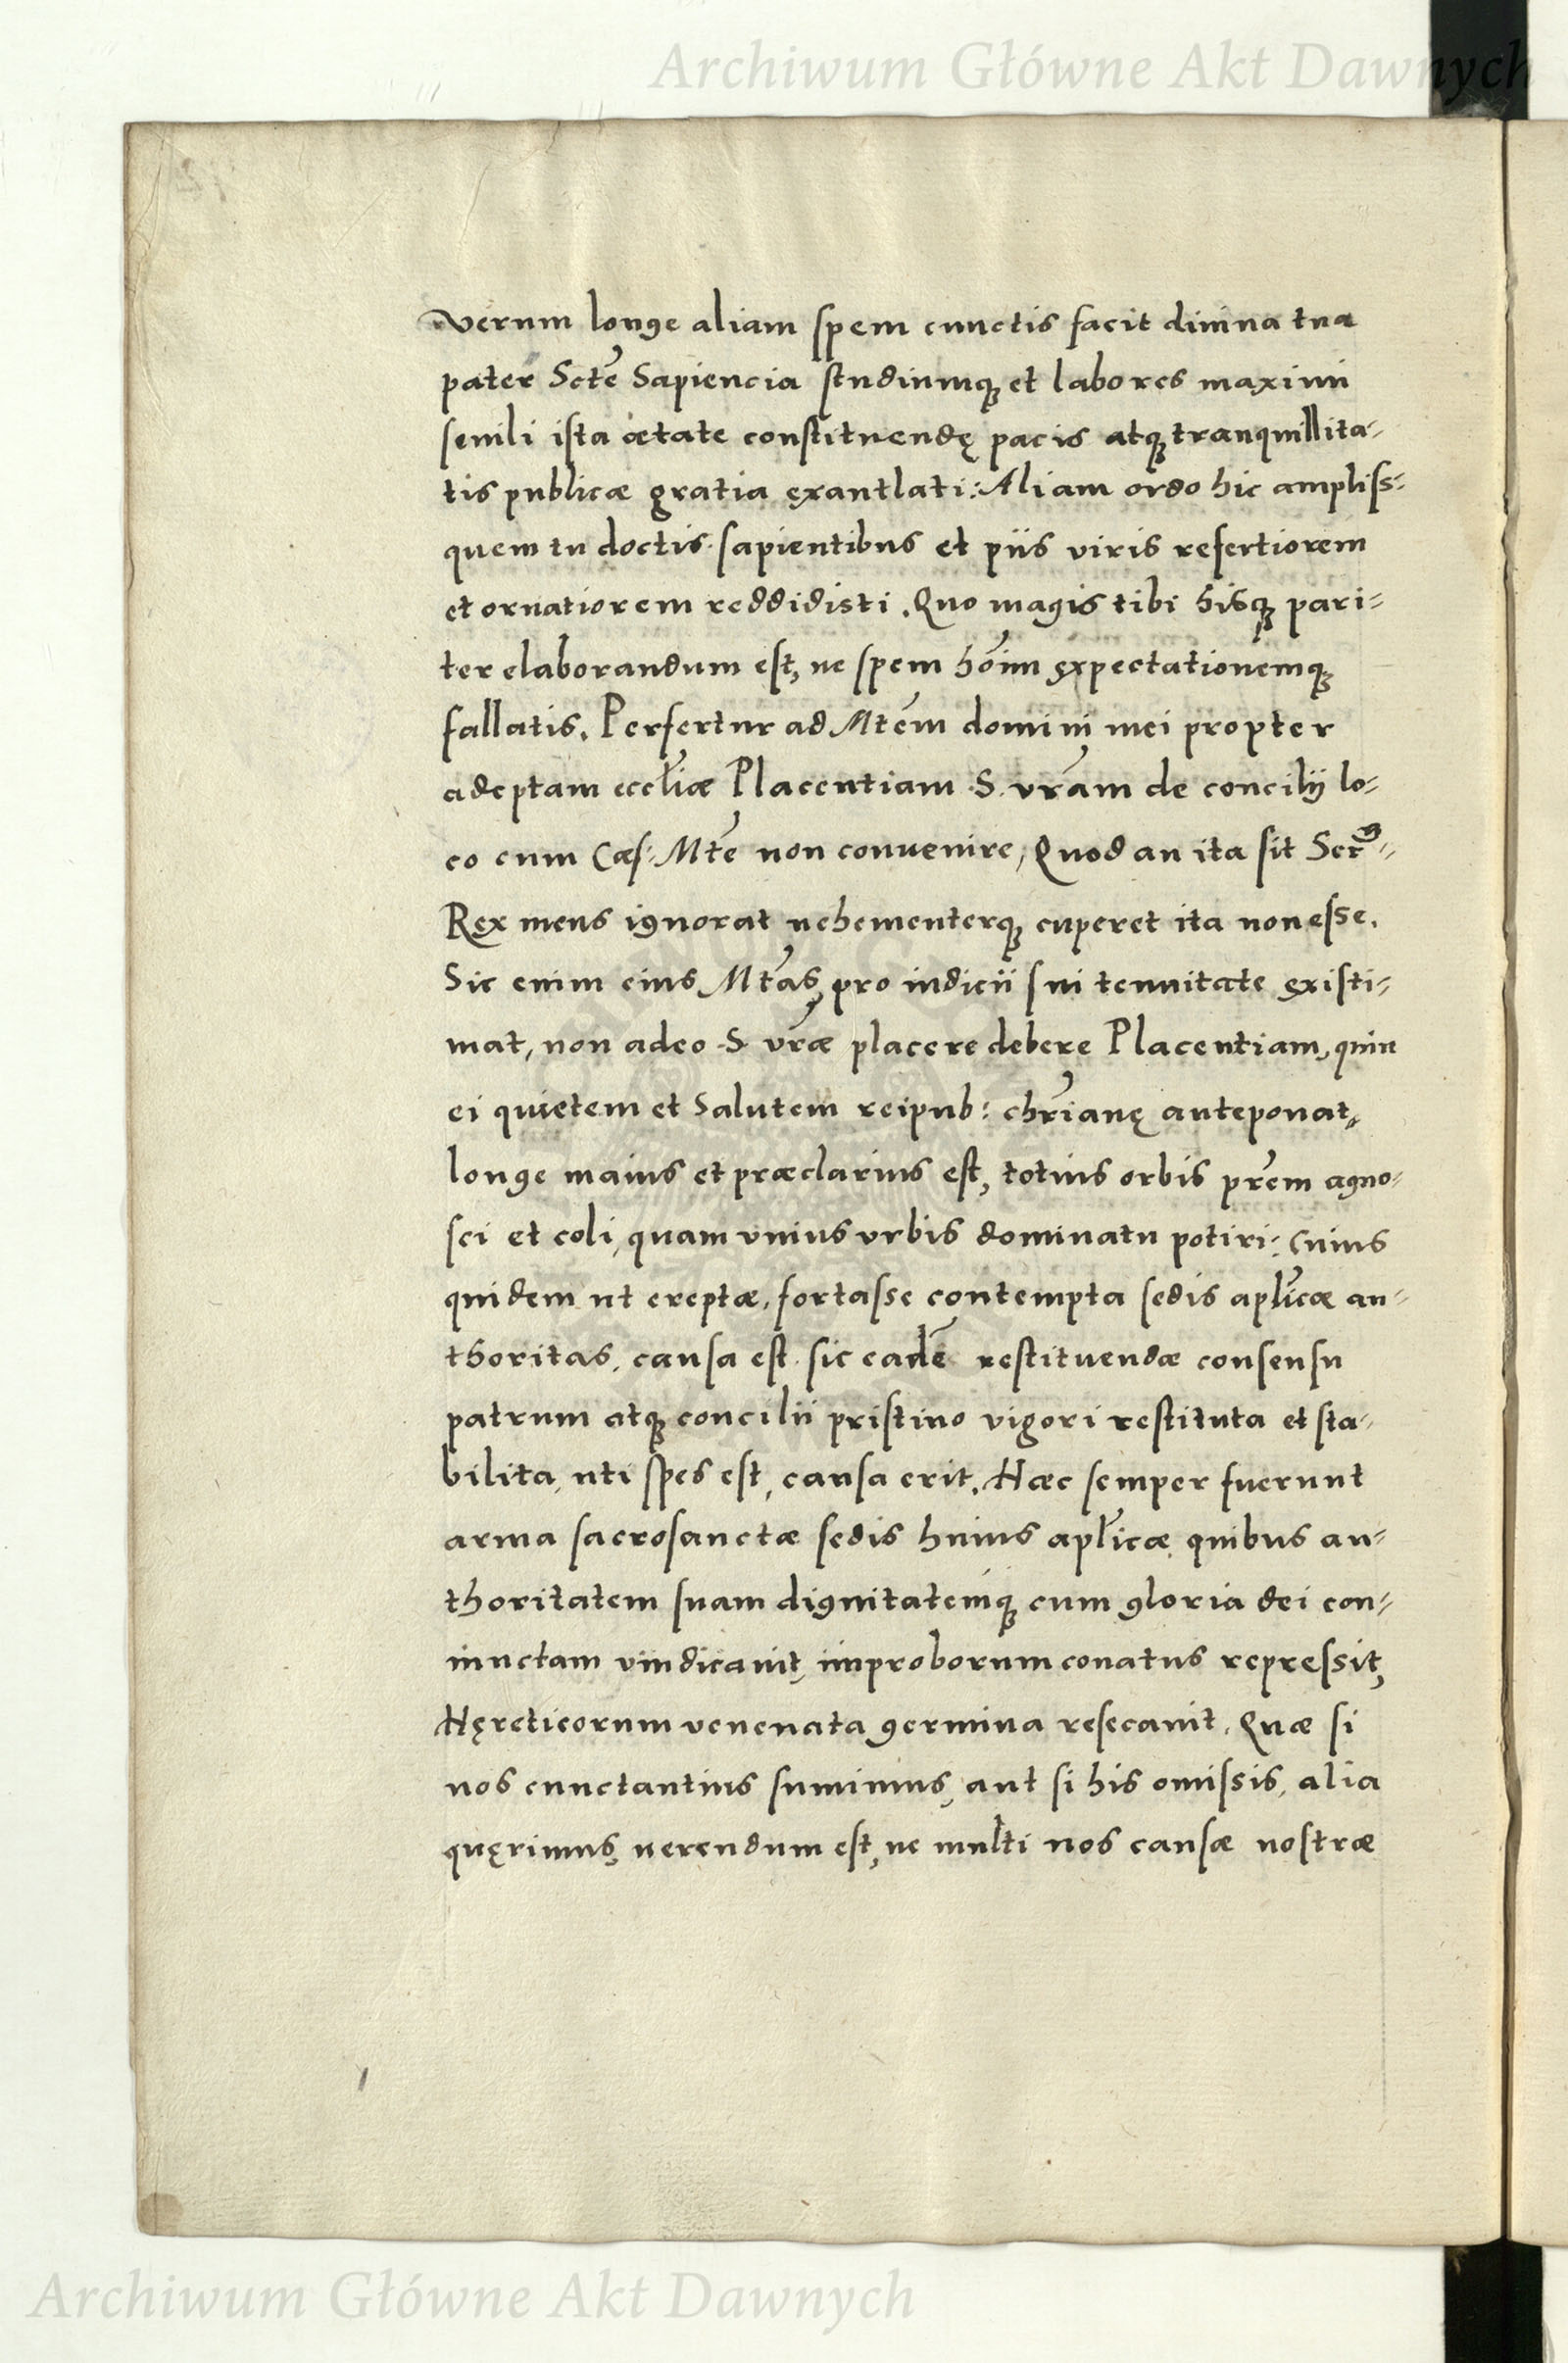 Archiwum Główne Akt Dawnych
Verum longe aliam spem cunctis facit diuina tua
pater Scte Sapiencia studiumq; et labores maximi
senili ista ætate constituendę pacis atq; tranquillita-
tis publicæ gratia exantlati: Aliam ordo hic ampliss:
quem tu doctis sapientibus et piis viris refertiorem
et ornatiorem reddidisti. Quo magis tibi hisq; pari-
ter elaborandum est, ne spem hoĩm expectationemq;
fallatis. Perfertur ad Mtẽm domini mei propter
adeptam eccl̃iæ Placentiam .S. vrãm de concilij lo-
co cum Cæs: Mtẽ non conuenire, Quod an ita sit Ser^mus
Rex meus ignorat uehementerq; cuperet ita non esse.
Sic enim eius Mtãs, pro iudicii sui tenuitate existi-
mat, non adeo .S. vrãæ placere debere Placentiam, quin
ei quietem et Salutem reipub: chrĩanę anteponat,
longe maius et præclarius est, totius orbis prẽm agno-
sci et coli, quam vnius vrbis dominatu potiri: Cuius
quidem ut ereptæ, fortasse contempta sedis apl̃icæ au-
thoritas, causa est. sic eadẽ restituendæ consensu
patrum atq; concilii pristino vigori restituta et sta-
bilita, uti spes est, causa erit. Hæc semper fuerunt
arma sacrosanctæ sedis huius apl̃icæ quibus au-
thoritatem suam dignitatemq; cum gloria dei con-
iunctam vindicauit, improborum conatus repressit,
Hęreticorum venenata germina resecauit. Quæ si
nos cunctantius sumimus, aut si his omissis, alia
quęrimus, uerendum est, ne multi nos causæ nostræ
Archiwum Główne Akt Dawnych